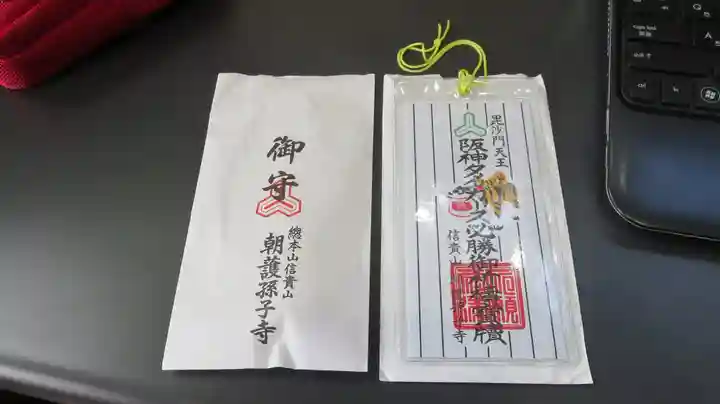 御守
總本山信貴山
朝護孫子寺
毘沙門天王
阪神タイガース必勝御祈祷寶牘
信貴山
寺